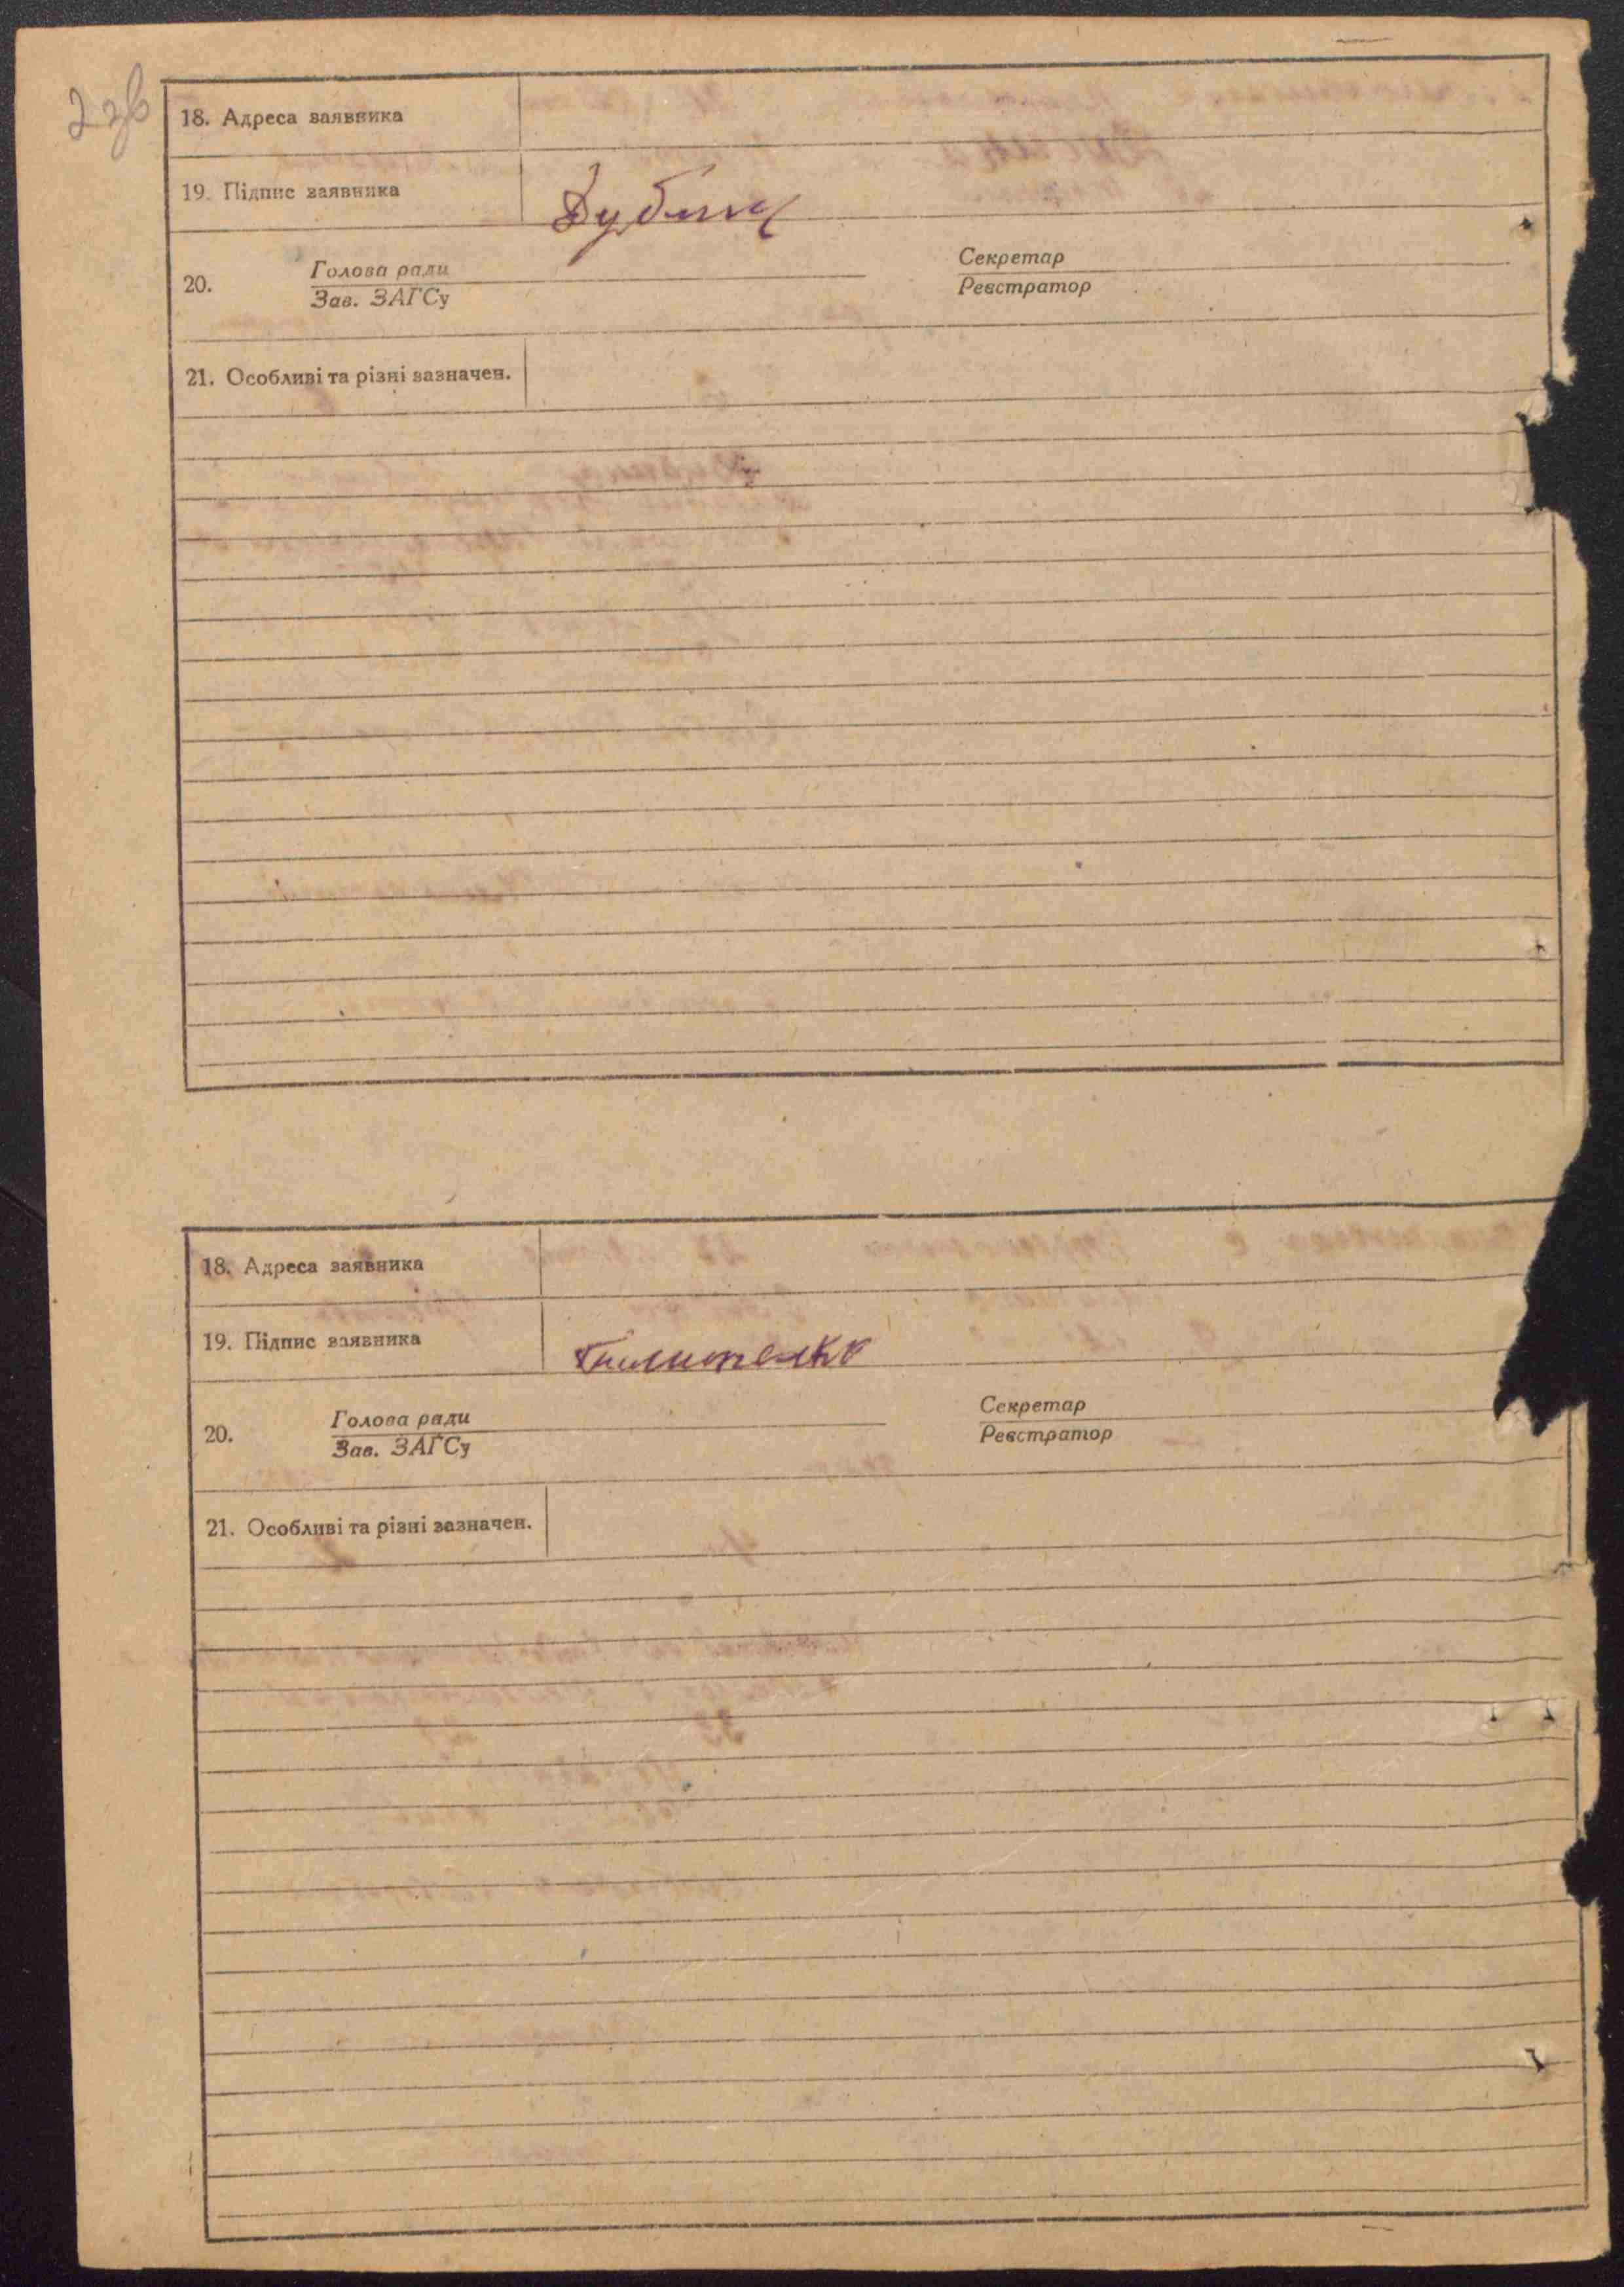 2зв
18. Адреса заявника
19. Підпис заявника Дубин
20. Голова ради Секретар
Зав. ЗАГСу Реєстратор
21. Особливі та різні зазначен.
18. Адреса заявника
19. Підпис заявника
20. Голова ради Секретар
Зав. ЗАГСу Реєстратор
21. Особливі та різні зазначен.